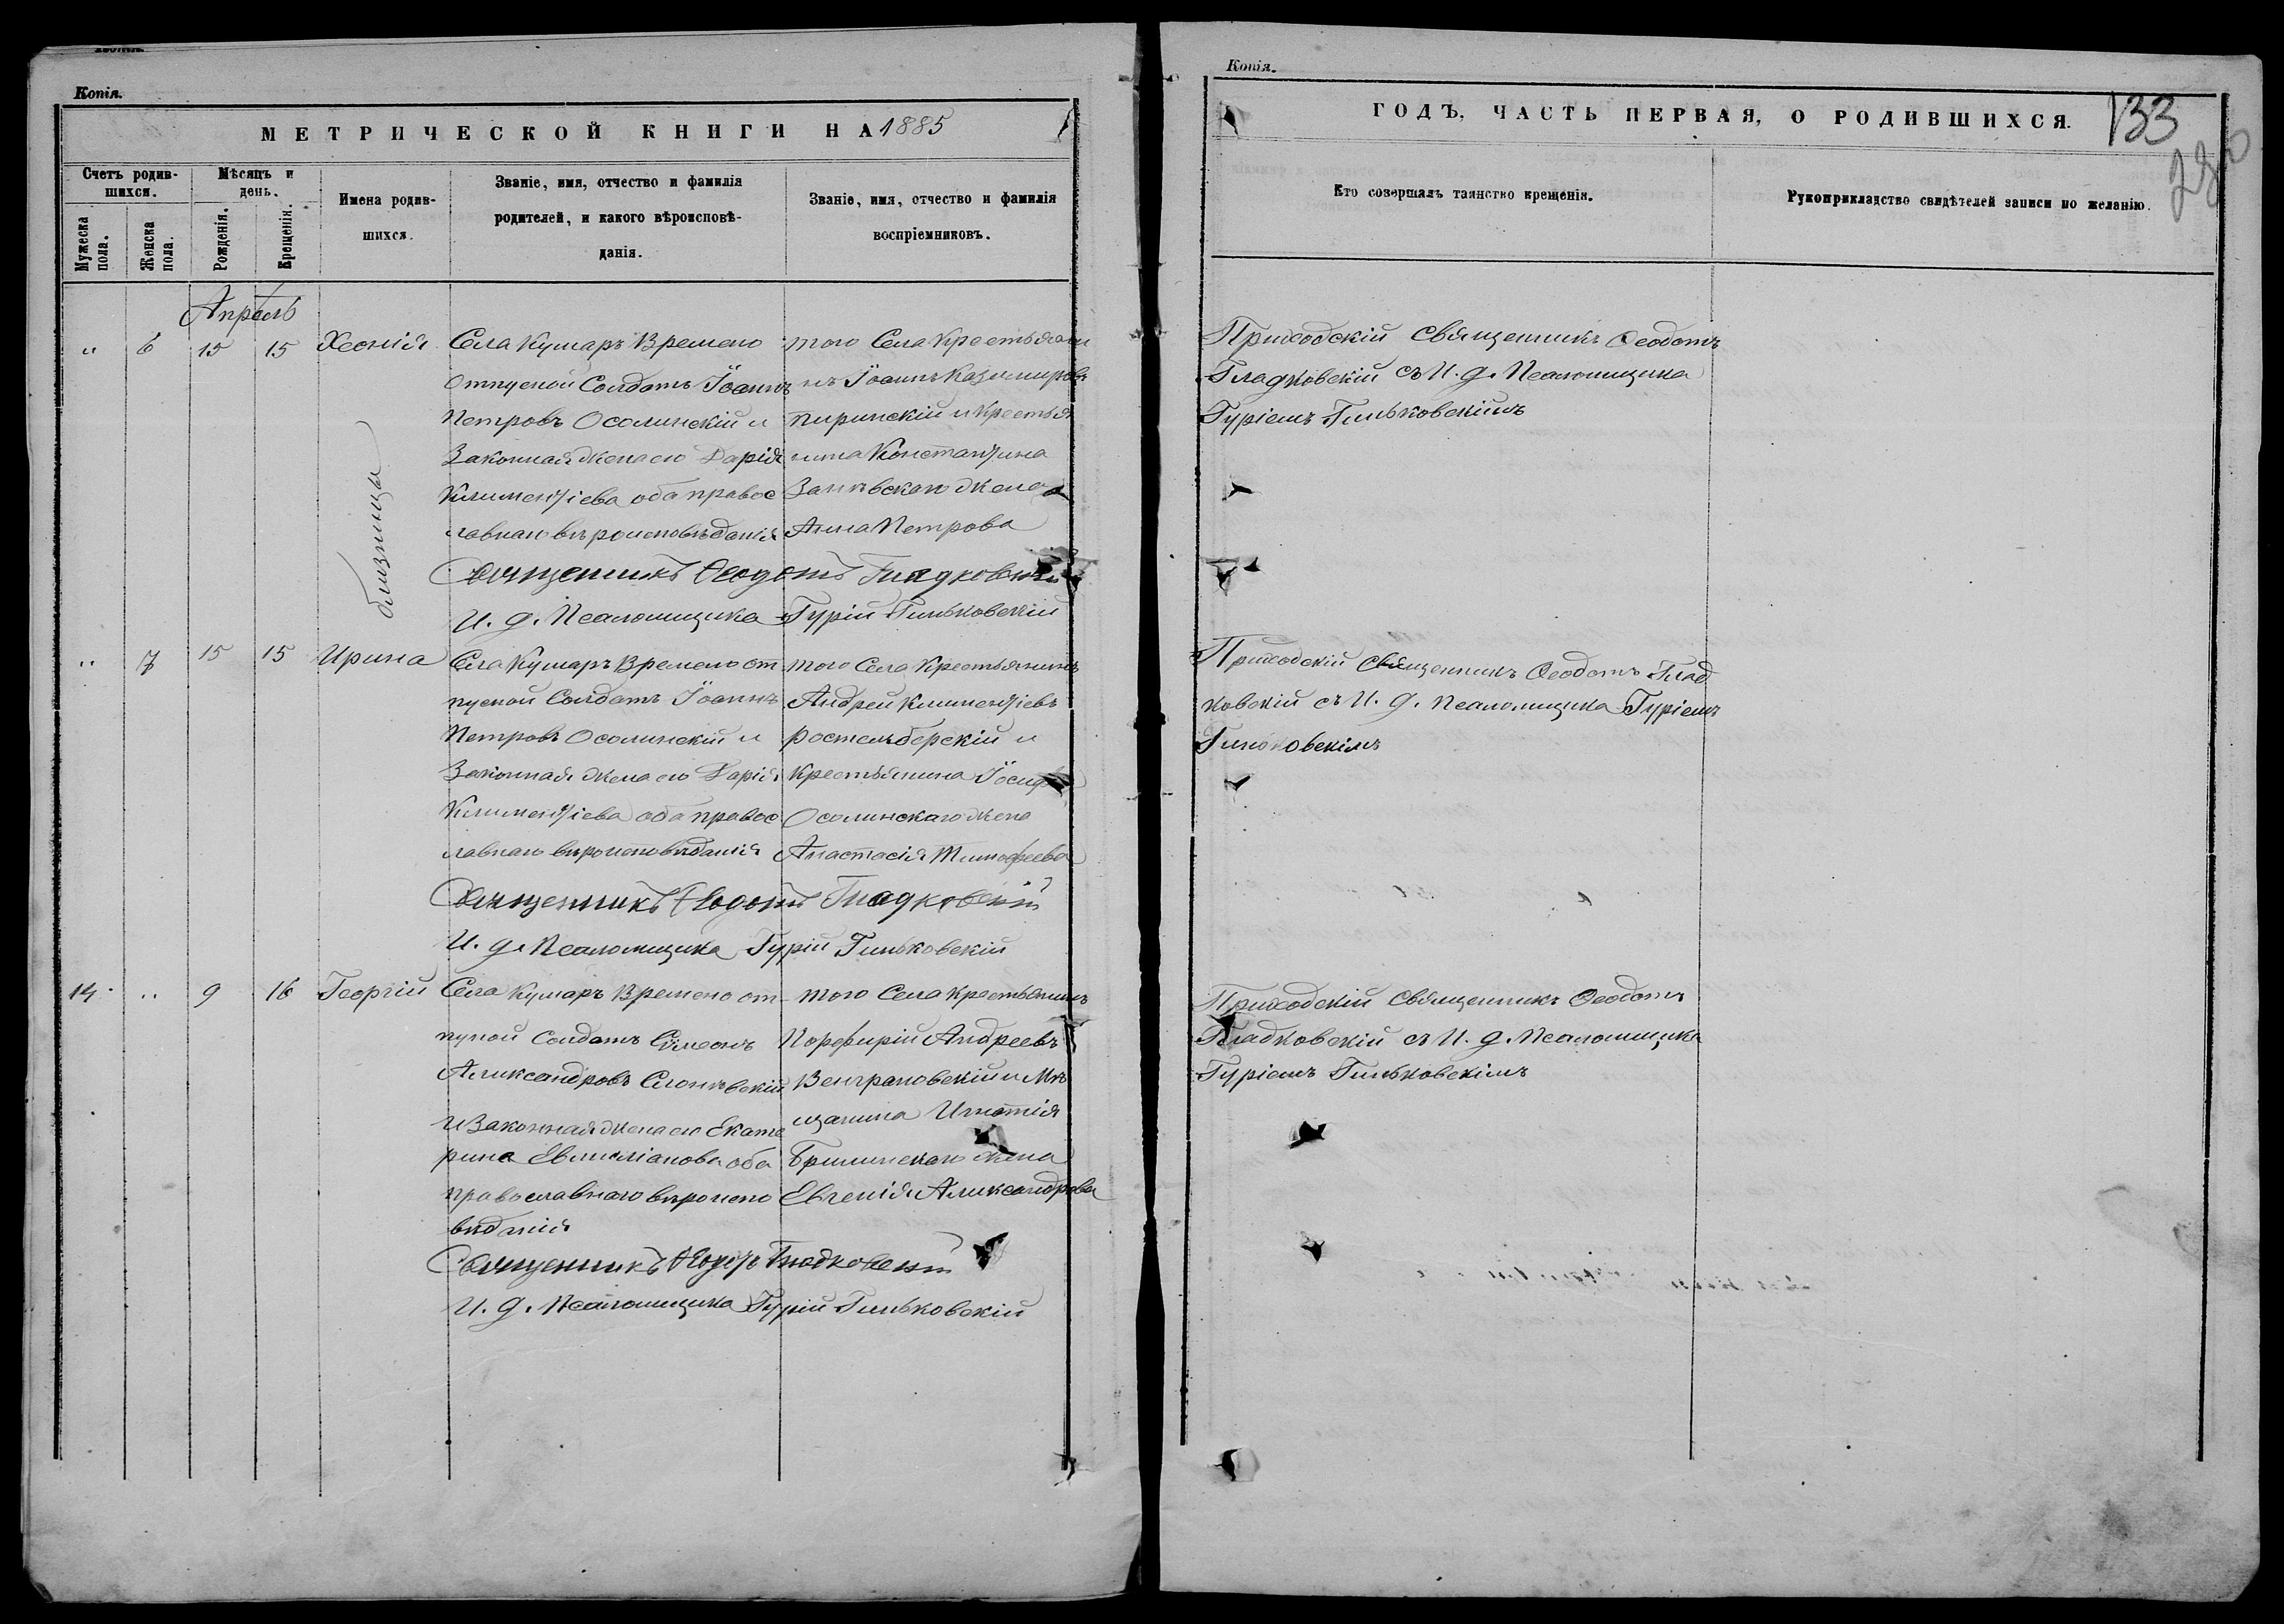 Копія.
МЕТРИЧЕСКОЙ КНИГИ НА 1885
Счетъ родив-
шихся.
Мѣсяцъ и
день.
Мужеска
пола.
Женска
пола.
Рожденія.
Крещенія.
Имена родив-
шихся.
Званіе, имя, отчество и фамилія
родителей, и какого вѣроисповѣ-
данія.
Званіе, имя, отчество и фамилія
воспріемниковъ.
Апрель
" 6 15 15 Хеонія
Села Кумаръ Времено
Отпусной Солдатъ Іоаннъ
Петровъ Осолинскій и
Законная жена его Дарія
Климентіева оба правос
лавнаго вѣроисповѣданія
того Села Крестьяни
нъ Іоаннъ Казимировъ
пиринскій и Крестья
нина Константина
жена
Анна Петрова
Священникъ Ѳеодотъ Гладковскій
И. д. Псаломщика Гурій Гильковскій
близницы
" 7 15 15 Ирина
Села Кумаръ Времено от
пусной Солдатъ Іоаннъ
Петровъ Осолинскій и
Законная жена его Дарія
Климентіева оба правос
лавнаго вѣроисповѣданія
того Села Крестьянинъ
Андрей Климентіевъ
Ростембѣрскій и
Крестьянина Іосифа
Осолинскаго жена
Анастасія Тимофеева
Священникъ Ѳеодотъ Гладковскій
И. д. Псаломщика Гурій Гильковскій
14 " 9 16 Георгій
Села Кумаръ Времено от
пуной Солдатъ Симеонъ
Александровъ Слонѣвскій
и Законная жена его Екате
рина Евмиліанова оба
православнаго вѣроиспо
вѣданія
того Села Крестьянинъ
Порфирій Андреевъ
Венграновскій и Мѣ
щанина Игнатія
жена
Евгенія Александрова
Священникъ Ѳеодотъ Гладковскій
И. д. Псаломщика Гурій Гильковскій
Копія.
ГОДЪ, ЧАСТЬ ПЕРВАЯ, О РОДИВШИХСЯ.
133
Кто совершалъ таинство крещенія.
Рукоприкладство свидѣтелей записи по желанію.
Приходскій Священникъ Ѳеодотъ
Гладковскій съ И. д. Псаломщика
Гуріемъ Гильковскимъ
Приходскій Священникъ Ѳеодотъ Глад
ковскій съ И. д. Псаломщика Гуріемъ
Гильковскімъ
Приходскій Священникъ Ѳеодотъ
Гладковскій съ И. д. Псаломщика
Гуріемъ Гильковскімъ